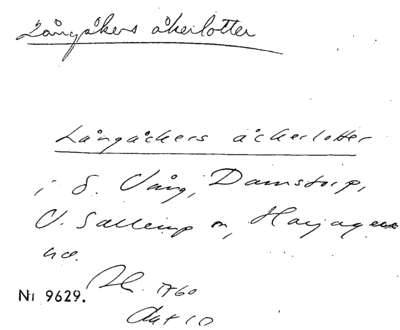 Långåkers åkerlotter
Långåckers åckerlotter
i S. Vång, Damstorp,
V. Sallerup
Nr 9629. 1760
Akt 10